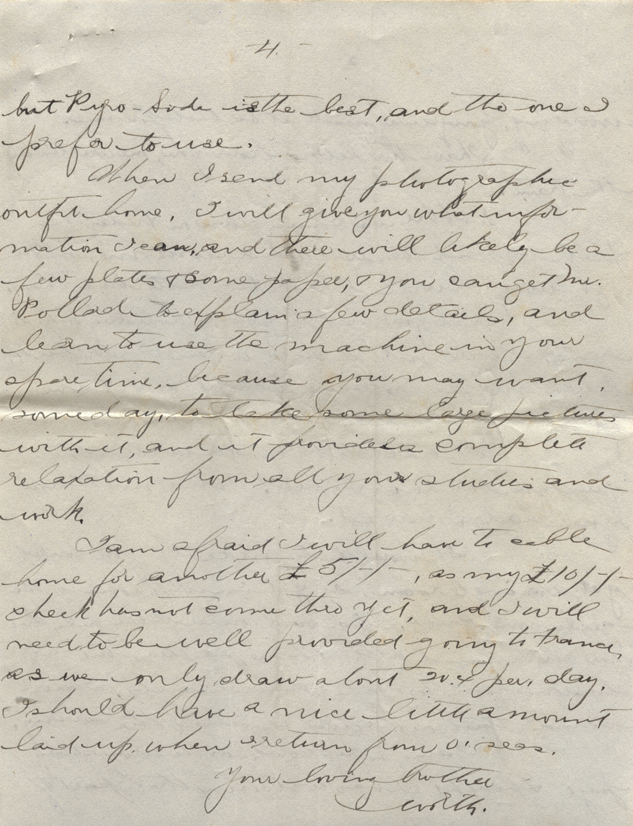 -4-
but Pyro-Soda is the best, and the one I
prefer to use.
When I send my photographic
outfit home, I will give you what infor-
mation I can, and there will likely be a
few plates & some paper, & you can get Mr.
Pollad to explain a few details, and
learn to use the machine in your
spare time, because you may want,
someday, to take some large pictures
with it, and it provides a complete
relaxation from all your studies and
work.
I am afraid I will have to cable
home for another £5/-/-, as my £10/-/-
check has not come thro yet, and I will
need to be well provided going to France,
as we only draw about per. day.
I should have a nice little amount
laid up when I return from o'seas.
Your loving brother
Worth.